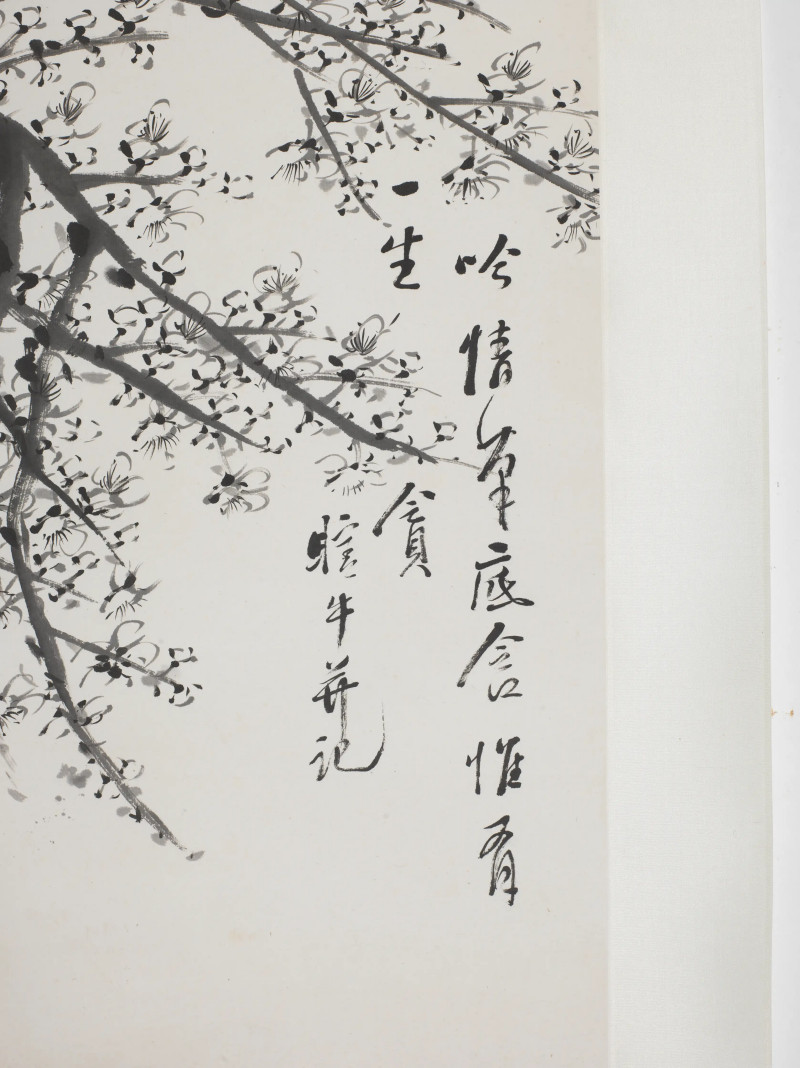 吟情筆底含惟有
一生貪
瞎牛并記